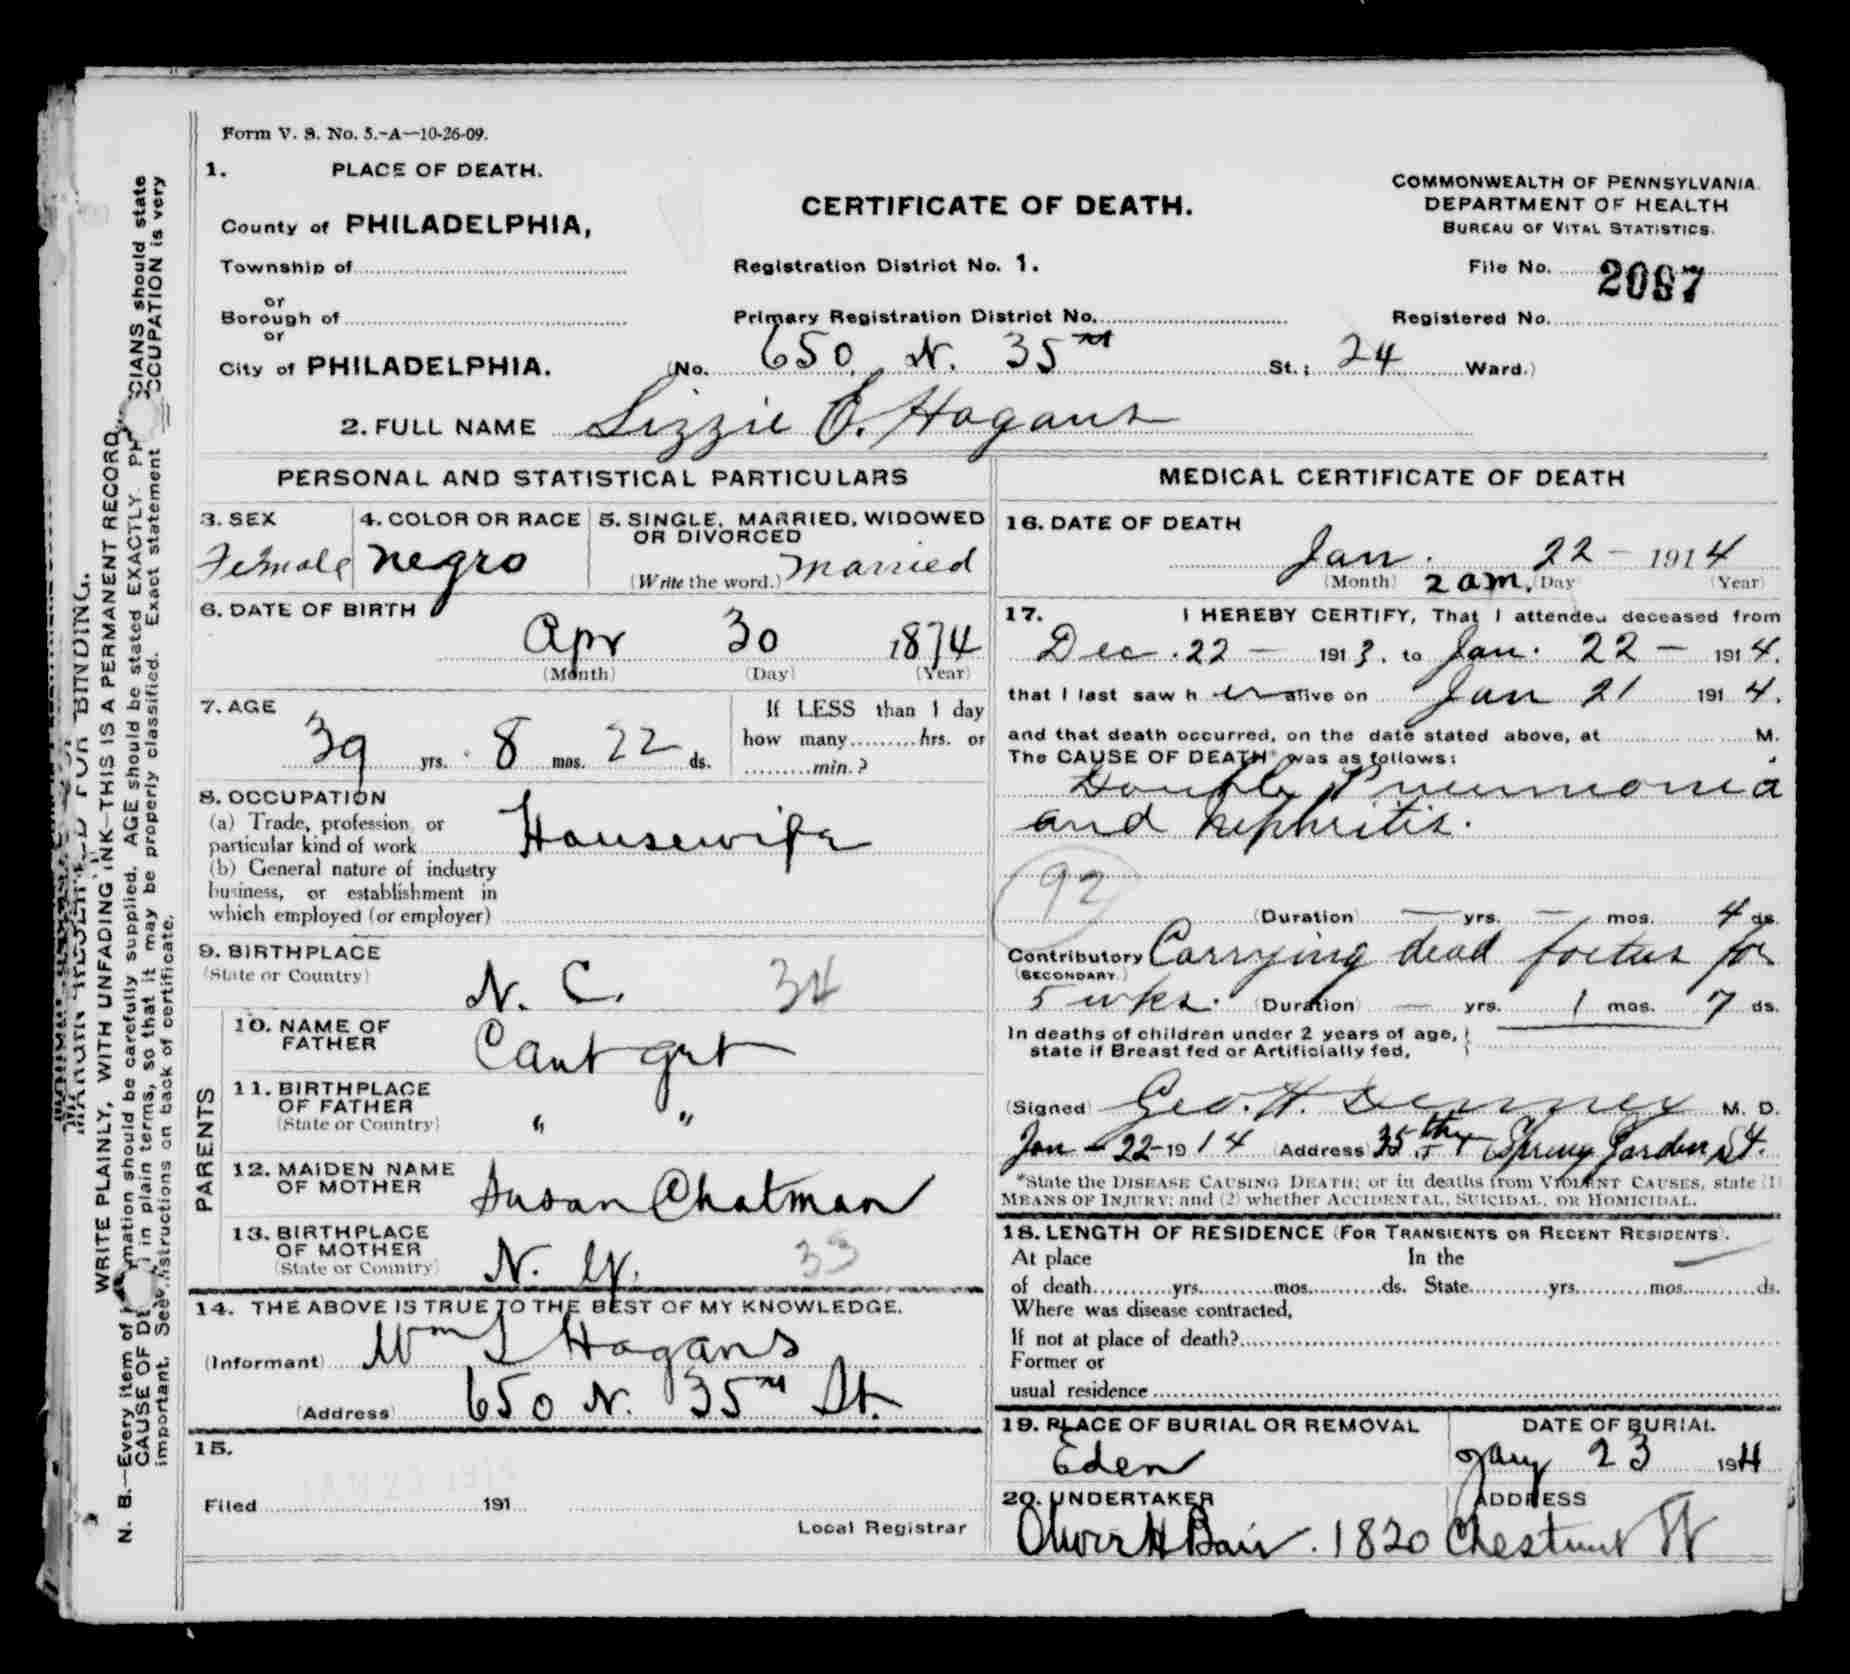 Form V. S. No. 5.-A—10-26-09.
1. PLACE OF DEATH.
County of PHILADELPHIA,
Township of
or
Borough of
or
City of PHILADELPHIA.
CERTIFICATE OF DEATH.
COMMONWEALTH OF PENNSYLVANIA.
DEPARTMENT OF HEALTH
BUREAU OF VITAL STATISTICS.
Registration District No. 1.
File No. 2097
Primary Registration District No.
Registered No.
(No. 650 N. 35th St.; 24 Ward.)
2. FULL NAME Lizzie E. Hogans
PERSONAL AND STATISTICAL PARTICULARS
3. SEX
Female
4. COLOR OR RACE
negro
5. SINGLE, MARRIED, WIDOWED
OR DIVORCED
(Write the word.) Married
6. DATE OF BIRTH
Apr 30 1874
(Month) (Day) (Year)
7. AGE
39 yrs. 8 mos. 22 ds.
If LESS than 1 day
how many.........hrs. or
.........min.?
8. OCCUPATION
(a) Trade, profession or
particular kind of work Housewife
(b) General nature of industry
business, or establishment in
which employed (or employer)
9. BIRTHPLACE
(State or Country)
N. C. 34
PARENTS
10. NAME OF
FATHER Cant get
11. BIRTHPLACE
OF FATHER
(State or Country) " "
12. MAIDEN NAME
OF MOTHER Susan Chatman
13. BIRTHPLACE
OF MOTHER
(State or Country) N. Y. 33
14. THE ABOVE IS TRUE TO THE BEST OF MY KNOWLEDGE.
(Informant) Wm L Hogans
(Address) 650 N. 35th St.
15.
Filed 191
Local Registrar
MEDICAL CERTIFICATE OF DEATH
16. DATE OF DEATH
Jan. 22 — 1914
(Month) 2 am. (Day (Year)
17. I HEREBY CERTIFY, That I attended deceased from
Dec. 22 — 1913. to Jan. 22 — 1914.
that I last saw h er alive on Jan 21 1914.
and that death occurred, on the date stated above, at M.
The CAUSE OF DEATH* was as follows:
Double Pneumonia
and Nephritis.
92
(Duration) — yrs. — mos. 4 ds.
Contributory Carrying dead foetus for
(SECONDARY.)
5 wks. (Duration) — yrs. 1 mos. 7 ds.
In deaths of children under 2 years of age,
state if Breast fed or Artificially fed,
(Signed) Geo. H. M. D.
Jan - 22-1914 (Address) 35th + Spring Garden St.
*State the DISEASE CAUSING DEATH; or in deaths from VIOLENT CAUSES, state (1)
MEANS OF INJURY; and (2) whether ACCIDENTAL, SUICIDAL, OR HOMICIDAL.
18. LENGTH OF RESIDENCE (FOR TRANSIENTS OR RECENT RESIDENTS).
At place In the
of death...........yrs...........mos...........ds. State...........yrs...........mos...........ds.
Where was disease contracted,
If not at place of death?
Former or
usual residence
19. PLACE OF BURIAL OR REMOVAL
Eden
DATE OF BURIAL
Jany 23 1914
20. UNDERTAKER
Oliver H Bair.
ADDRESS
1820 Chestnut St
MARGIN RESERVED FOR BINDING.
WRITE PLAINLY, WITH UNFADING INK—THIS IS A PERMANENT RECORD.
N. B.—Every item of mation should be carefully supplied. AGE should be stated EXACTLY. PH CIANS should state
CAUSE OF DE in plain terms, so that it may be properly classified. Exact statement OCCUPATION is very
important. See structions on back of certificate.